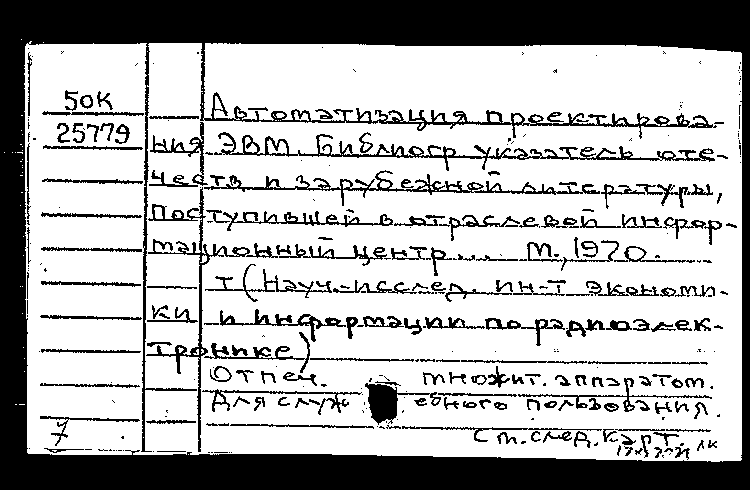 50К
25779
Автоматизация проектирова-
ния ЭВМ. Библиогр указатель оте-
честв и зарубежной литературы,
поступившей в отраслевой инфор-
мационный центр... М., 1970.
т (Науч.-исслед. ин-т экономи-
ки и информации по радиоэлек-
тронике)
Отпеч. множит. аппаратом.
Для служебного пользования.
См. след. карт.